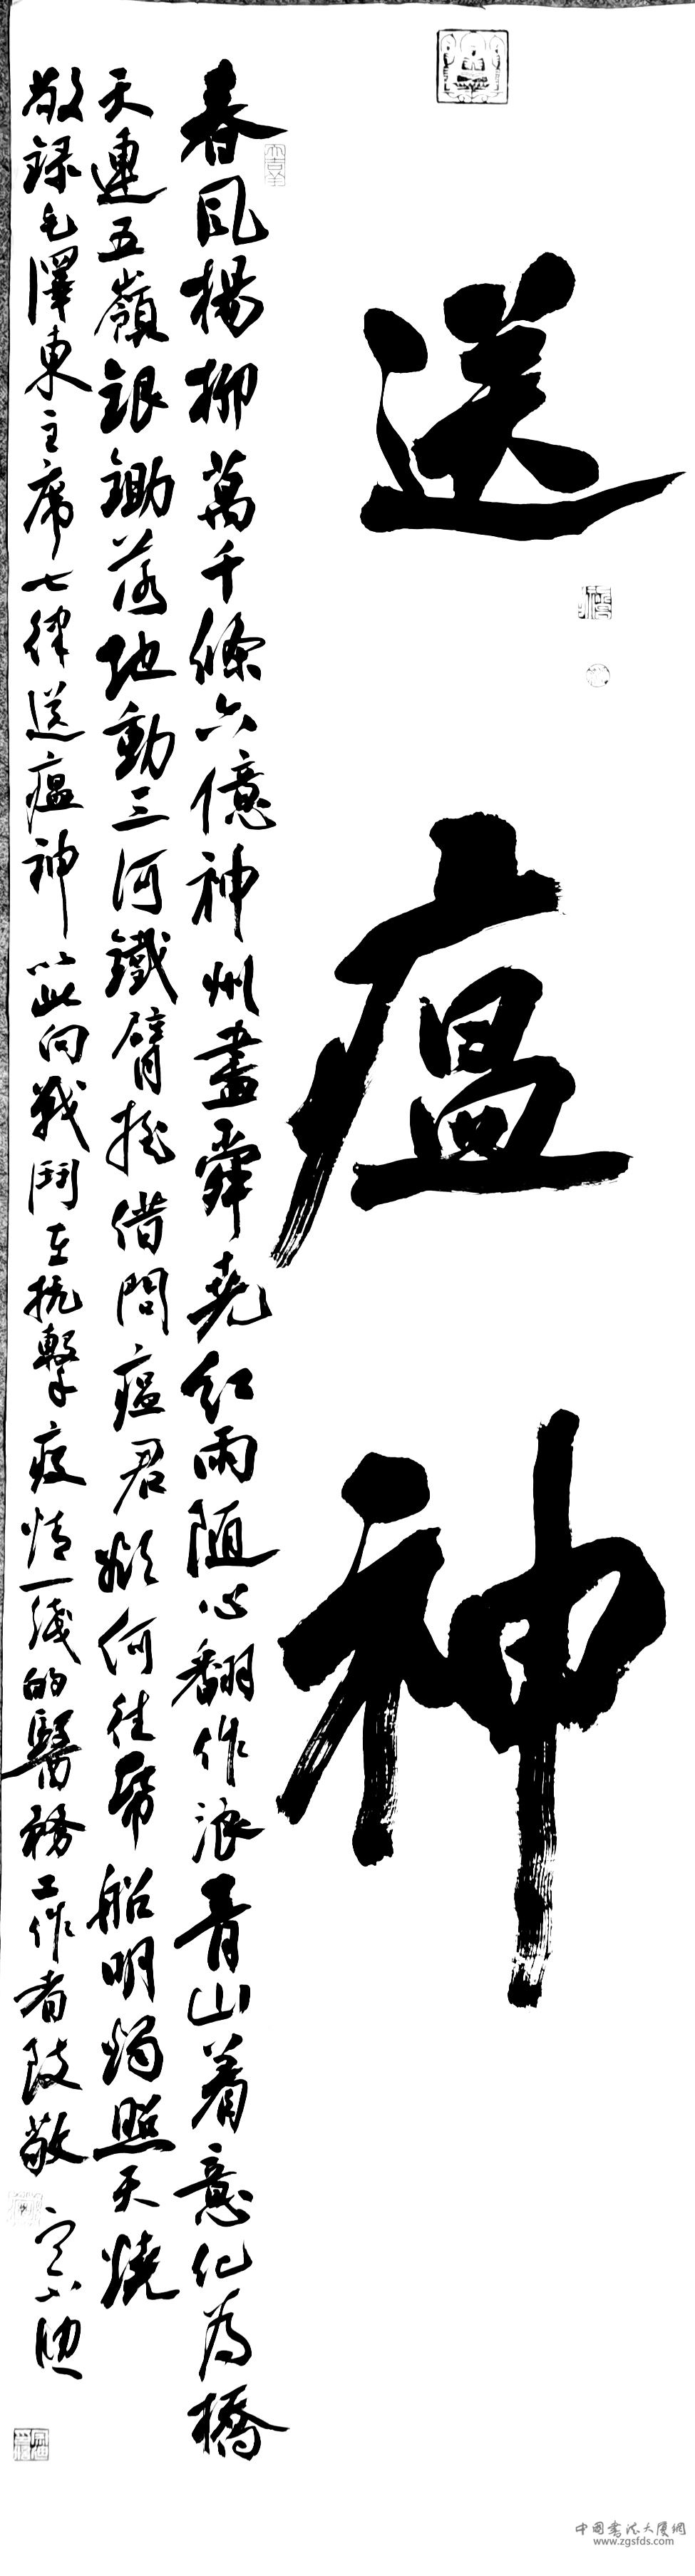 送瘟神
春風楊柳萬千條六億神州盡舜堯紅雨隨心翻作浪青山着意化為橋
天連五嶺銀鋤落地動三河鐵臂搖借問瘟君欲何往紙船明燭照天燒
敬録毛澤東主席七律送瘟神以此向戰鬥在抗擊疫情一綫的醫務工作者致敬
中国書法大廈網
www.zgsfds.com